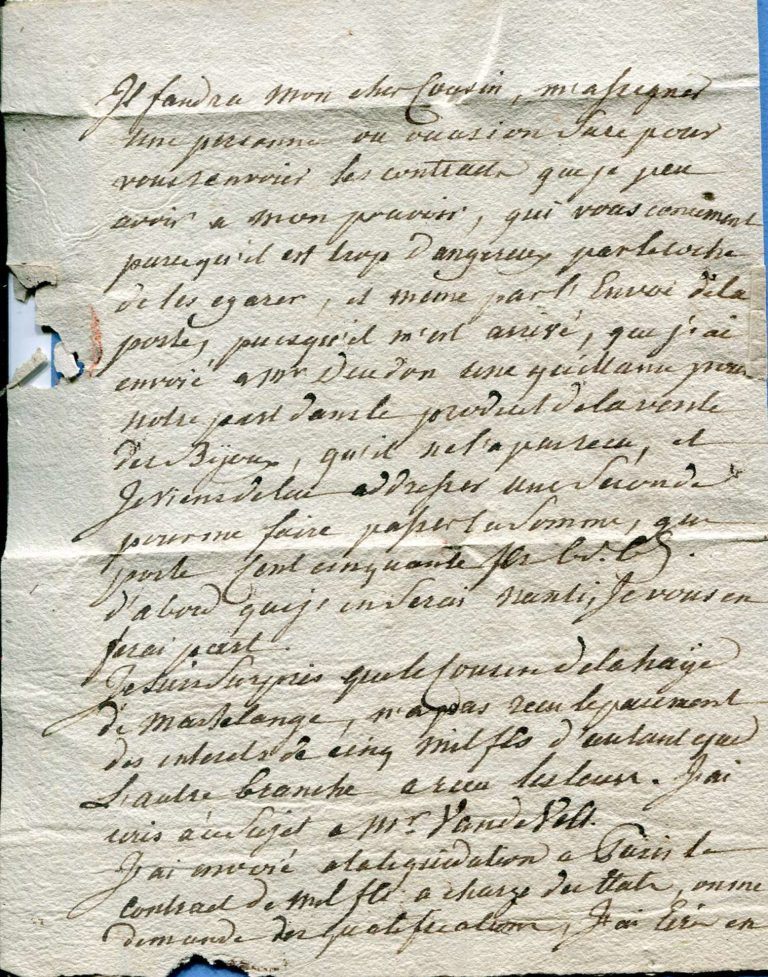 Il faudra mon cher Cousin, m'assigner
une personne ou ocasion sure pour
vous renvoier les contracts que je peu
avoir a mon pouvoir, qui vous concernent
parcequ'il est trop d'angereux par le coche
de les egarer, et meme par l'Envoi de la
poste, puisqu'il m'est arrivé, que j'ai
envoié a Mr Deudon une quittance pour
notre part dans le produit de la vente
des Bijoux, qu'il ne l'a pas recu, et
Je viens de lui addresser une seconde
pour me faire passer la somme, que
porte Cent cinquante
d'abord que j'en serai nanti, Je vous en
ferai part.
Je suis surpris que le Cousin Delahaye
de Martelange, n'a pas recu le paiement
des interets de cinq mil fls d'autant que
L'autre branche a recu les leurs. J'ai
ecris à ce Sujet a Mr. VandeVelt.
J'ai envoié a la liquidation a Paris le
contract de mil fls a charge des Etats, on me
demande des qualifications, J'ai Ecri en